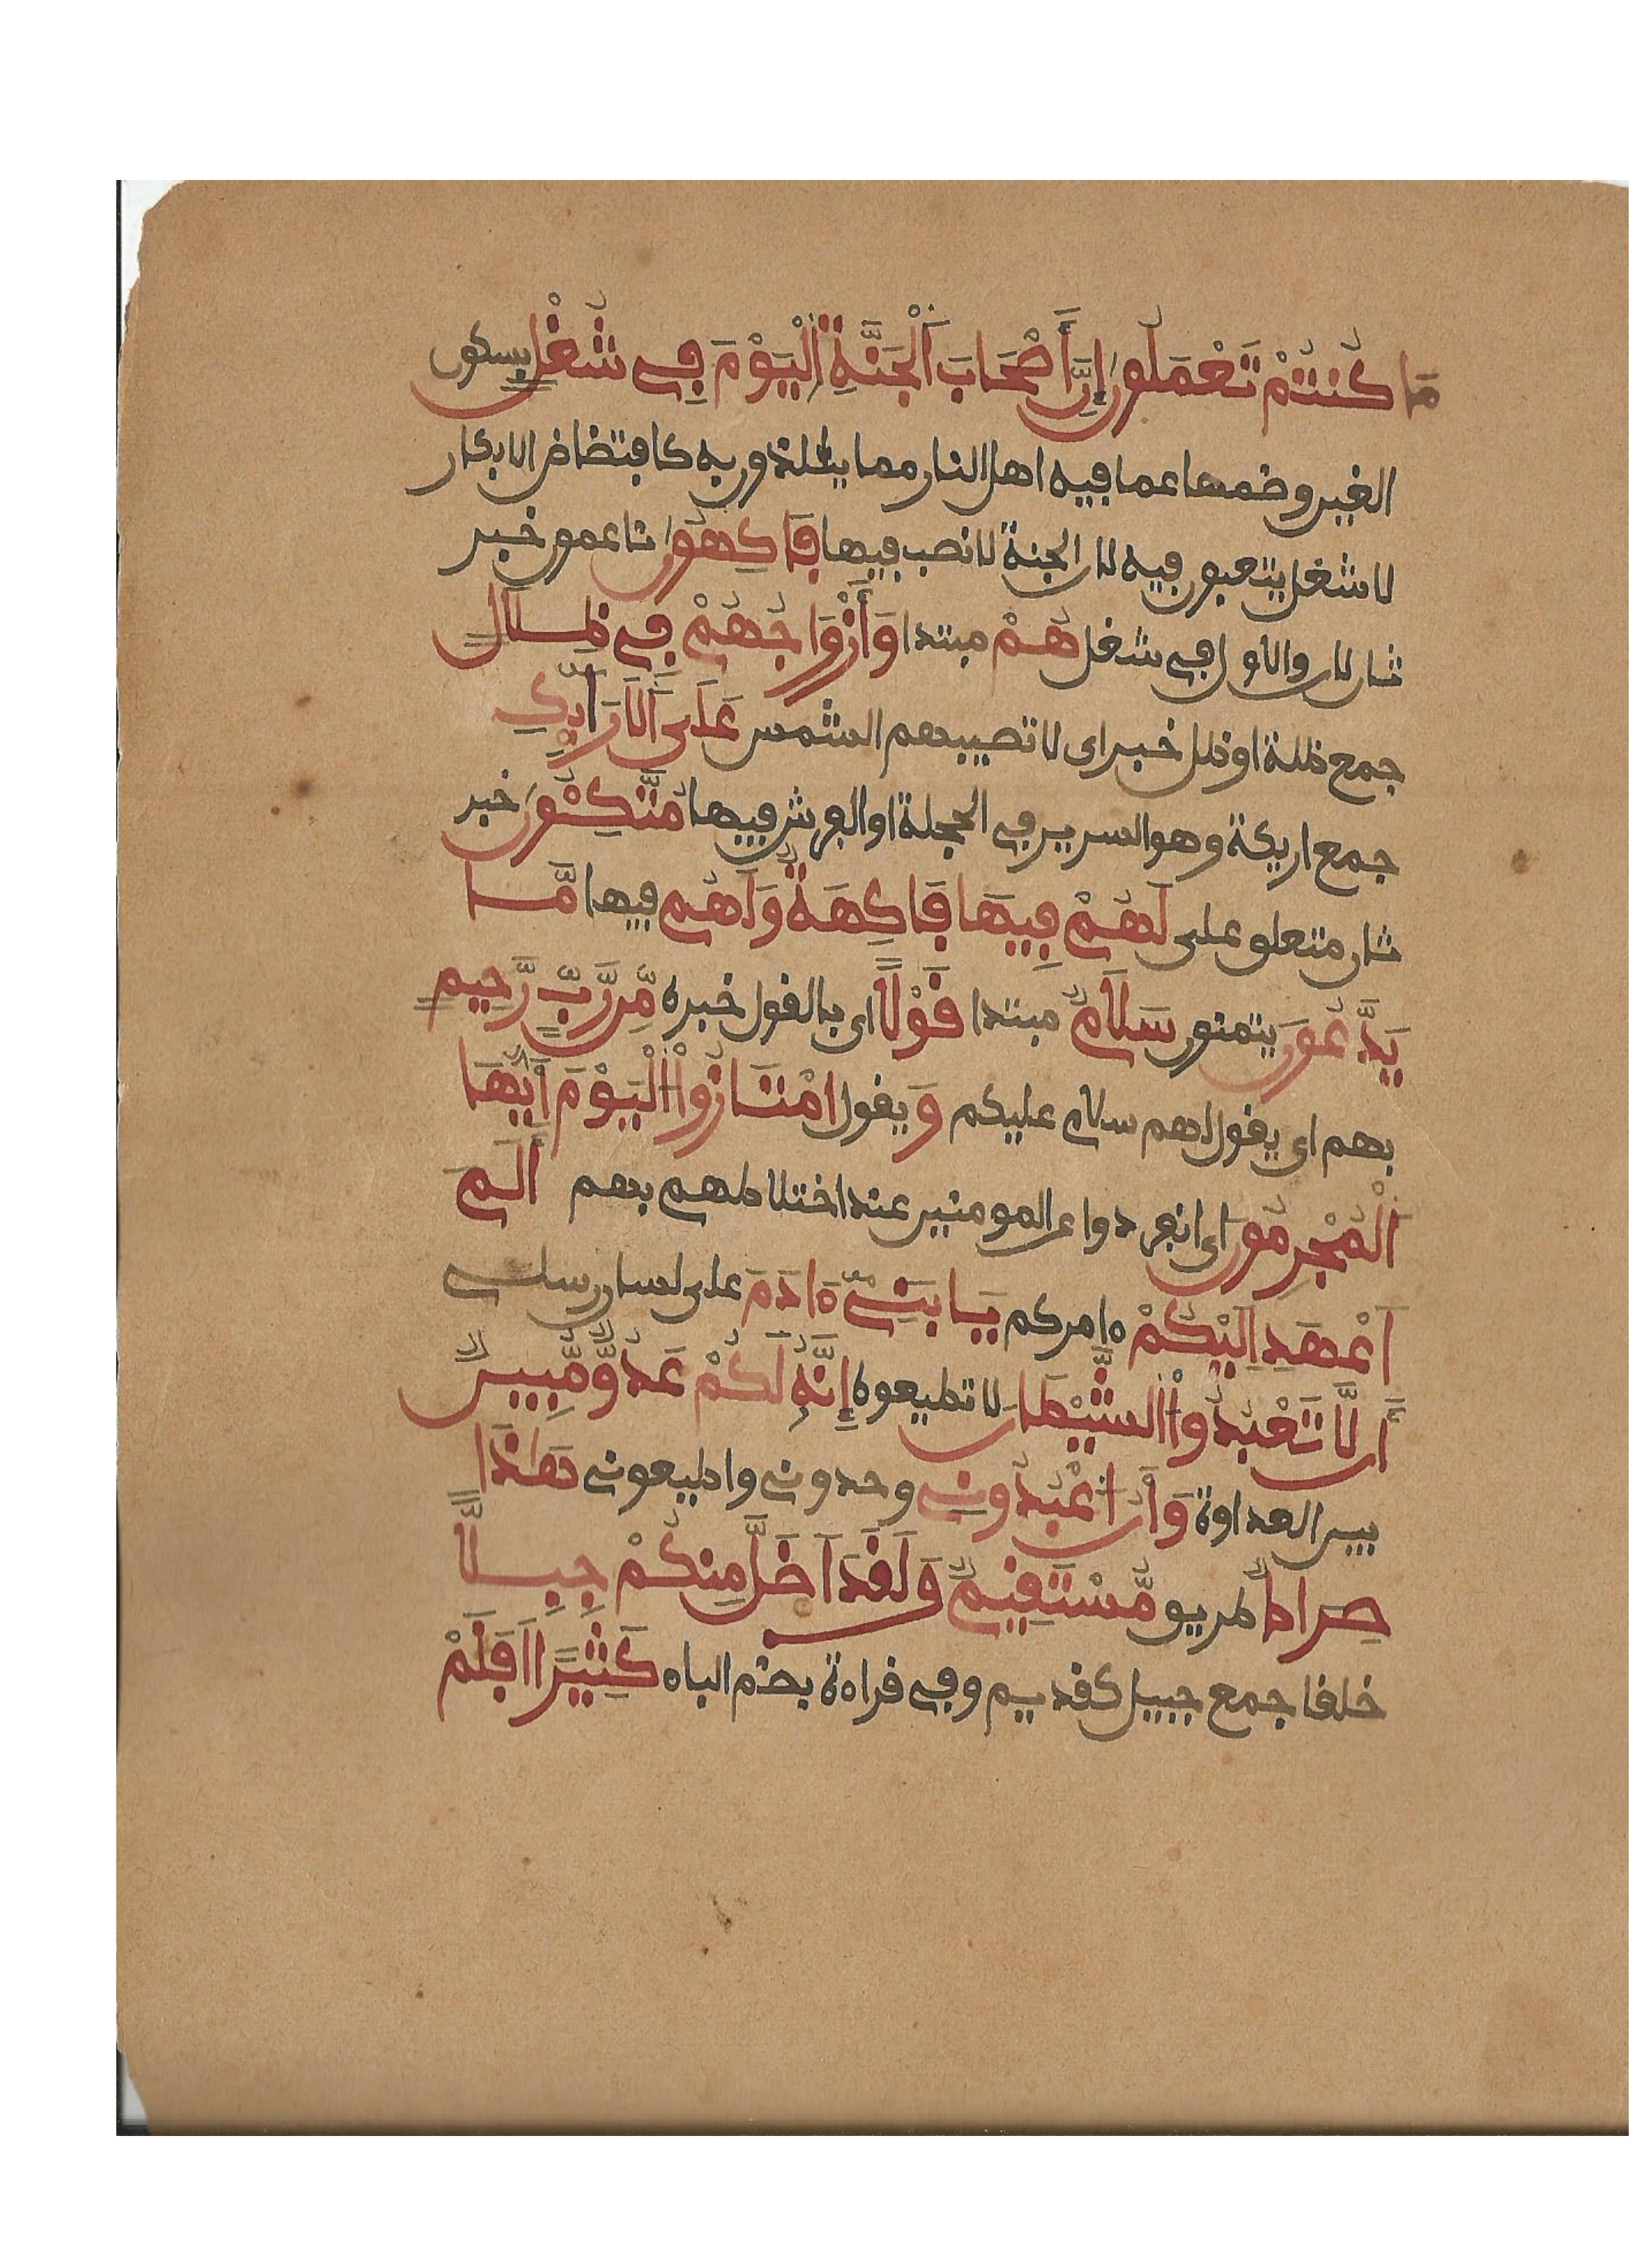 مَا كُنتُمْ تَعْمَلُونَ إِنَّ أَصْحَابَ اَلْجَنَّةِ اِلْيَوْمَ فِے شُغْلٍ بسكون
الغين وضمها عما فيه اهل النار مما يتلذون به كافتضاض الابكار
لا شغل يتعبون فيه لان الجنة لا نصب فيها فَاكِهُونَ ناعمون خبر
ثان لان والاول في شغل هُمْ مبتدا وَأَزْوَاجُهُمْ فِے ظِلَالٍ
جمع ظلة او ظل خبر اى لا تصيبهم الشمس عَلَى اَلَارَآئِكِ
جمع اريكة وهو السرير في الحجلة او الفرش فيها مُتَّكِـُٔونَ خبر
ثان متعلق على لَهُمْ فِيهَا فَاكِهَةٌ وَلَهُم فيها مَّا
يَدَّعُونَ يتمنون سَلَامٌ مبتدا قَوْلًا اى بالقول خبره مِّن رَّبٍّ رَّحِيمٍ
بهم اى يقول لهم سلام عليكم وَ يقول امْتَازُواْ الْيَوْمَ أَيُّهَا
اَلْمُجْرِمُونَ اى انفردوا عن المومنين عند اختلاطهم بهم أَلَمَ
اَعْهَدِ اِلَيْكُمْ ءامركم يَابَنِے ءَادَمَ على لسان رسلے
أَن لَّا تَعْبُدُواْ الشَّيْطَانَ لا تطيعوه إِنَّهُ لَكُمْ عَدُوٌّ مُّبِينٌ
بين العداوة وَأَنُ اعْبُدُونِے وحدونے واطيعونے هَٰذَا
صِرَاطٌ طريق مُّسْتَقِيمٌ وَلَقَدَ اَضَلَّ مِنكُمْ جِبِلًّا
خلقا جمع جبيل كقديم وفي قراءة بضم الباء كَثِيرًا اَفَلَمْ